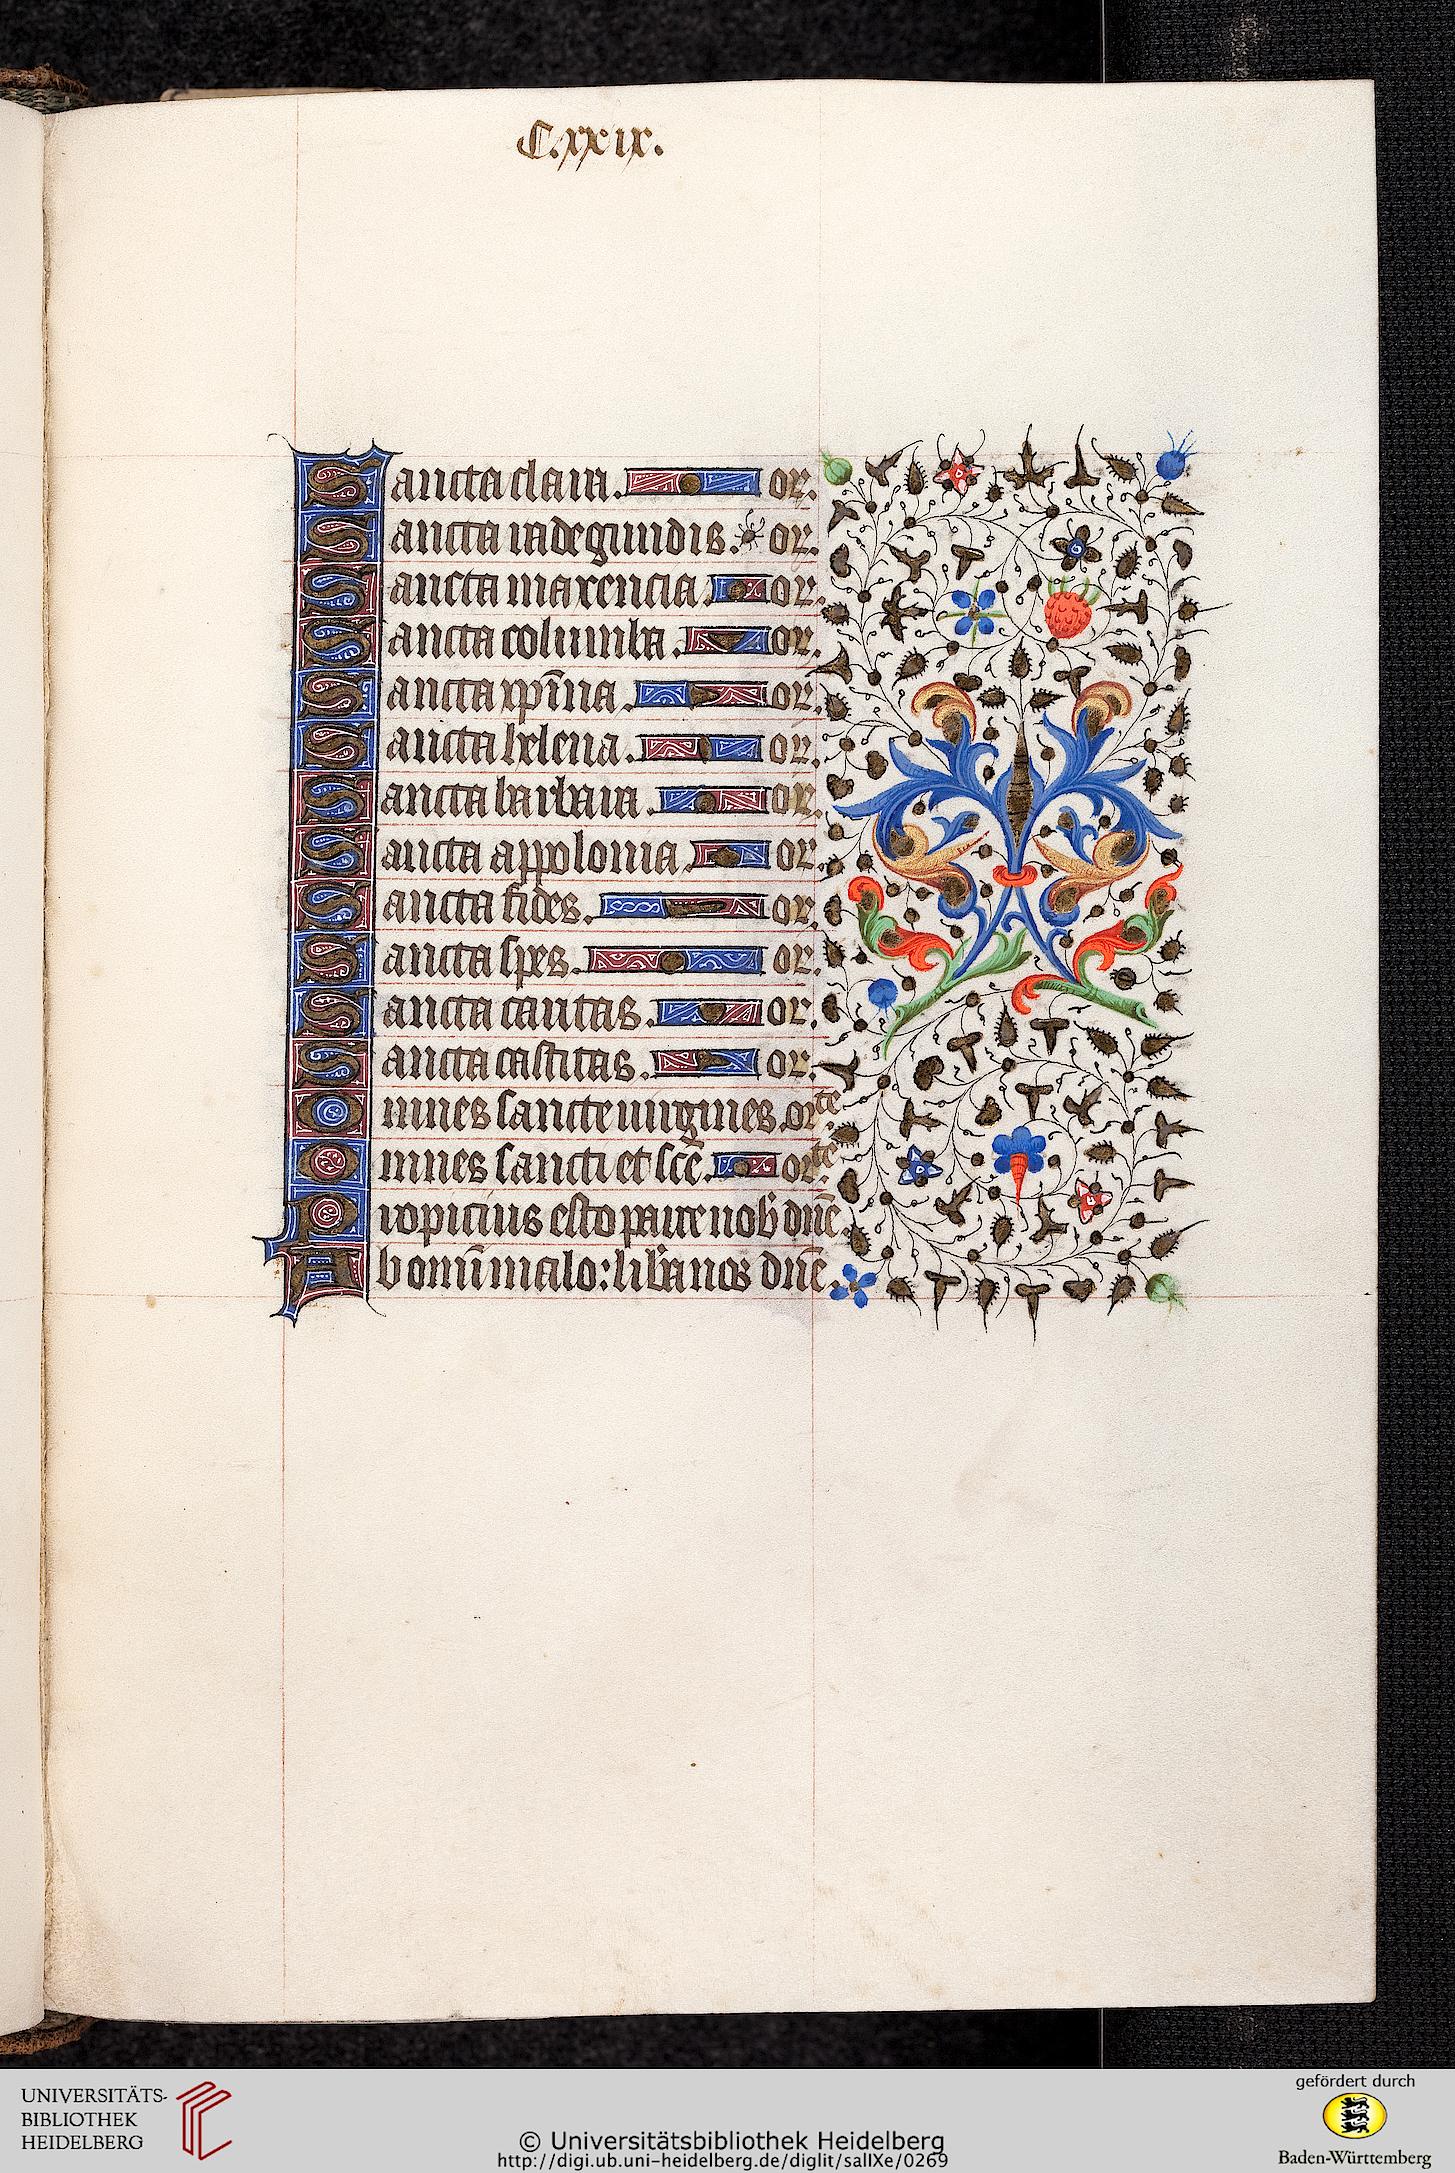 C.xxix.
Sancta clara. or.
Sancta radegundis. or.
Sancta maxencia. or.
Sancta columba. or.
Sancta xpīna. or.
Sancta helena. or.
Sancta barbara. or.
Sancta appolonia. or.
Sancta fides. or.
Sancta spes. or.
Sancta caritas. or.
Sancta castitas. or.
Omnes sancte virgines. orte
Omnes sancti et scē. orte.
Propicius esto parce nob̄ dn̄e.
Ab omī malo: lib̄a nos dn̄e.
UNIVERSITÄTS-
BIBLIOTHEK
HEIDELBERG
© Universitätsbibliothek Heidelberg
http://digi.ub.uni-heidelberg.de/diglit/salIXe/0269
gefördert durch
Baden-Württemberg